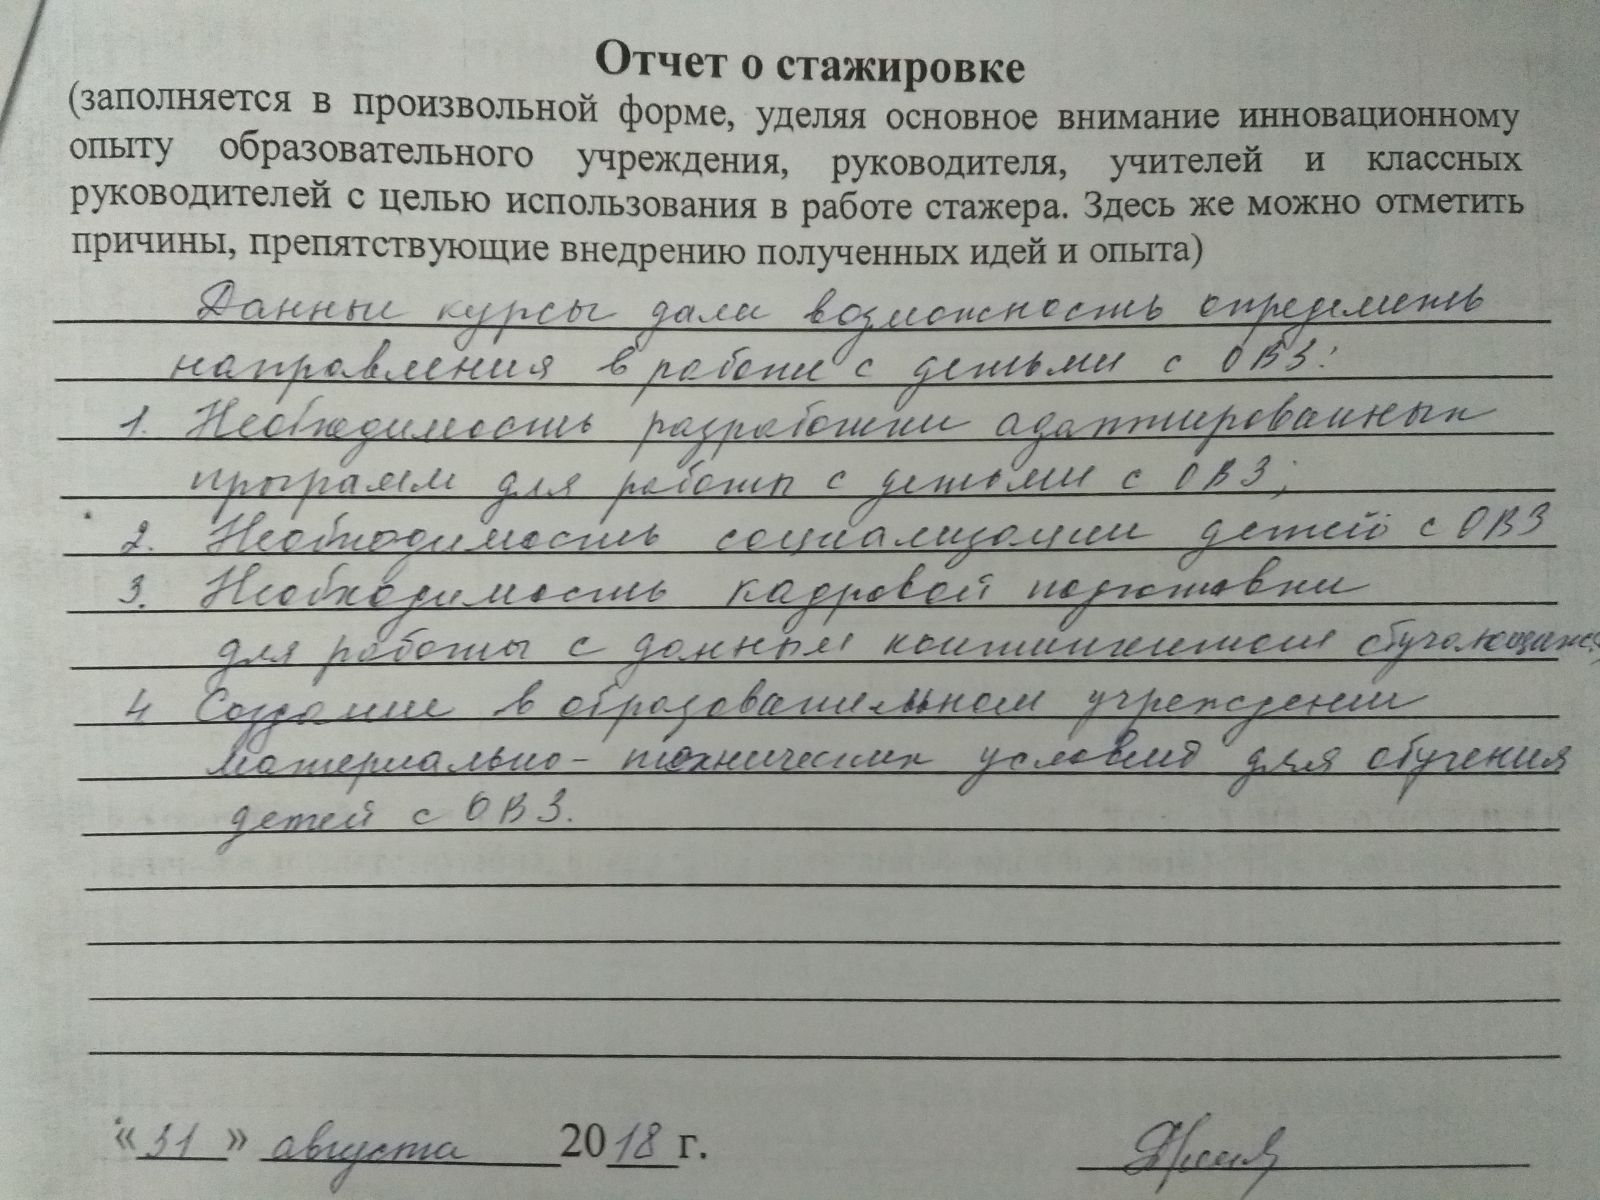 Отчет о стажировке
(заполняется в произвольной форме, уделяя основное внимание инновационному
опыту образовательного учреждения, руководителя, учителей и классных
руководителей с целью использования в работе стажера. Здесь же можно отметить
причины, препятствующие внедрению полученных идей и опыта)
Данные курсы дали возможность определить
направления в работе с детьми с ОВЗ:
1. Необходимость разработки адаптированных
программ для работы с детьми с ОВЗ;
2. Необходимость социализации детей с ОВЗ
3. Необходимость кадровой подготовки
для работы с данным контингентом обучающихся;
4 Создание в образовательном учреждении
материально-технических условий для обучения
детей с ОВЗ.
« 31 » августа 2018 г.